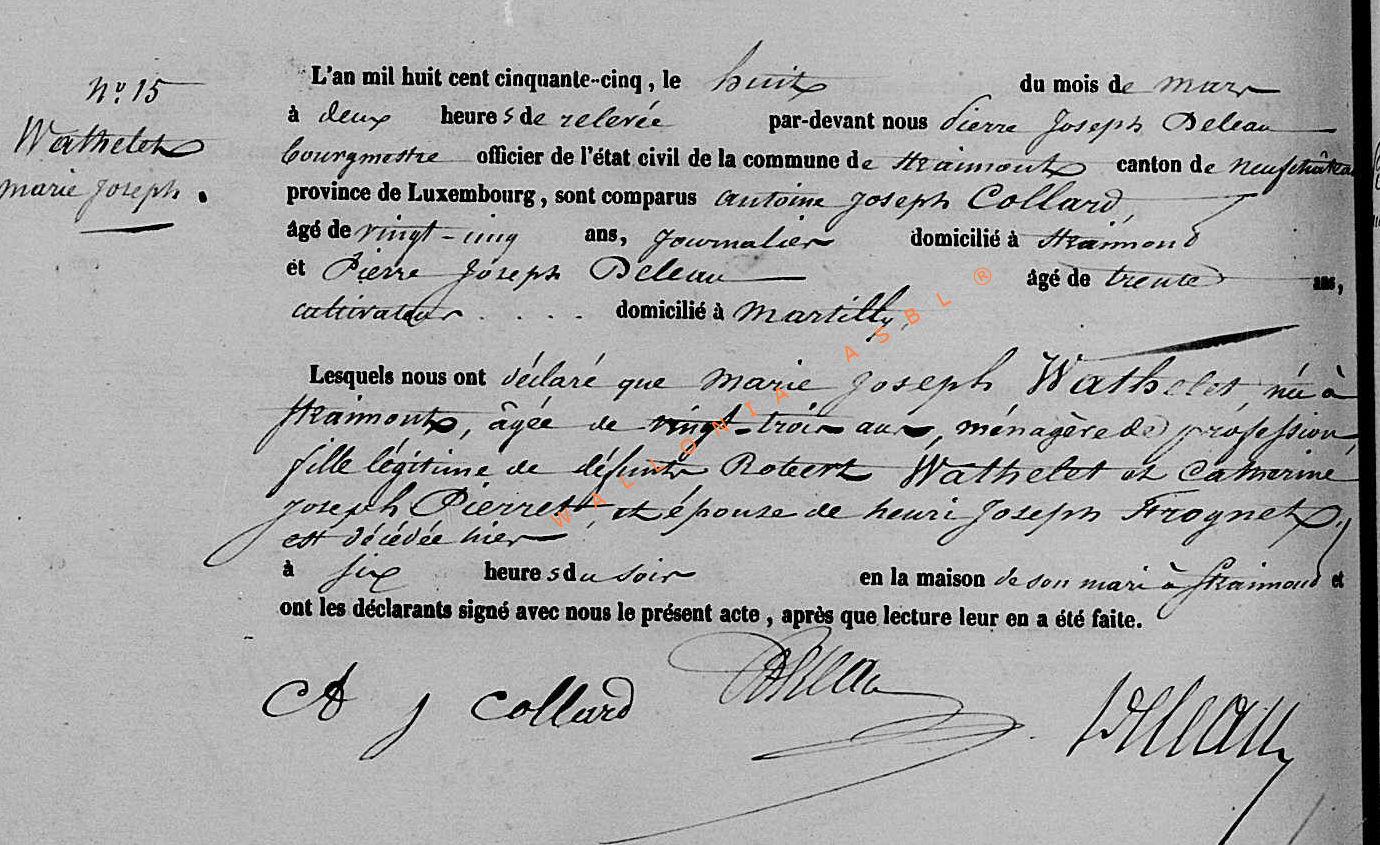 N.° 15
Wathelet
marie joseph.
L'an mil huit cent cinquante-cinq, le huit du mois de mars
à deux heures de relevée par-devant nous Pierre Joseph Deleau
bourgmestre officier de l'état civil de la commune de Straimont canton de neufchâteau
province de Luxembourg, sont comparus antoine joseph Collard,
âgé de vingt-cinq ans, journalier domicilié à Straimond
et Pierre Joseph Deleau âgé de trente ans,
cultivateur . . . . domicilié à Martilly,
Lesquels nous ont déclaré que Marie Joseph Wathelet, née à
Straimont, âgée de vingt-trois ans, ménagère de profession
fille légitime de défunts Robert Wathelet et Catherine
joseph Pierret, et épouse de henri Joseph Frognet,
est décédée hier
à six heures du soir en la maison de son mari à Straimond et
ont les déclarants signé avec nous le présent acte, après que lecture leur en a été faite.
A j Collard Deleau Deleau
WALLONIA ASBL ®